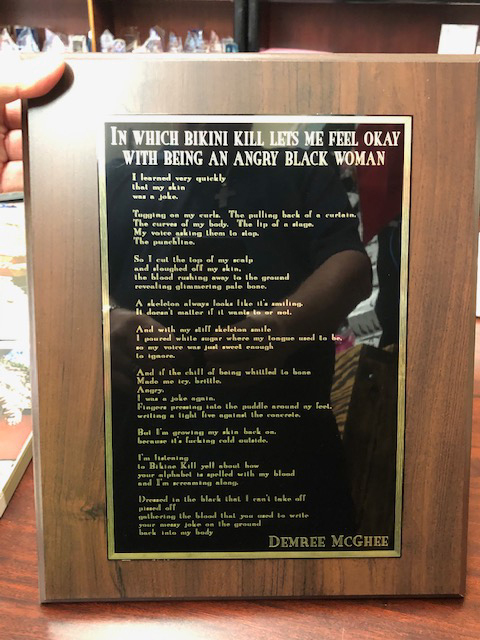 IN WHICH BIKINI KILL LETS ME FEEL OKAY
WITH BEING AN ANGRY BLACK WOMAN
I learned very quickly
that my skin
was a joke.
Tugging on my curls. The pulling back of a curtain.
The curves of my body. The lip of a stage.
My voice asking them to stop.
The punchline.
So I cut the top of my scalp
and sloughed off my skin,
the blood rushing away to the ground
revealing glimmering pale bone.
A skeleton always looks like it's smiling.
It doesn't matter if it wants to or not.
And with my stiff skeleton smile
I poured white sugar where my tongue used to be,
so my voice was just sweet enough
to ignore.
And if the chill of being whittled to bone
Made me icy, brittle,
Angry,
I was a joke again.
Fingers pressing into the puddle around my feet,
writing a tight five against the concrete.
But I'm growing my skin back on,
because it's fucking cold outside.
I'm listening
to Bikini Kill yell about how
your alphabet is spelled with my blood
and I'm screaming along,
Dressed in the black that I can't take off
pissed off
gathering the blood that you used to write
your messy joke on the ground
back into my body
DEMREE MCGHEE